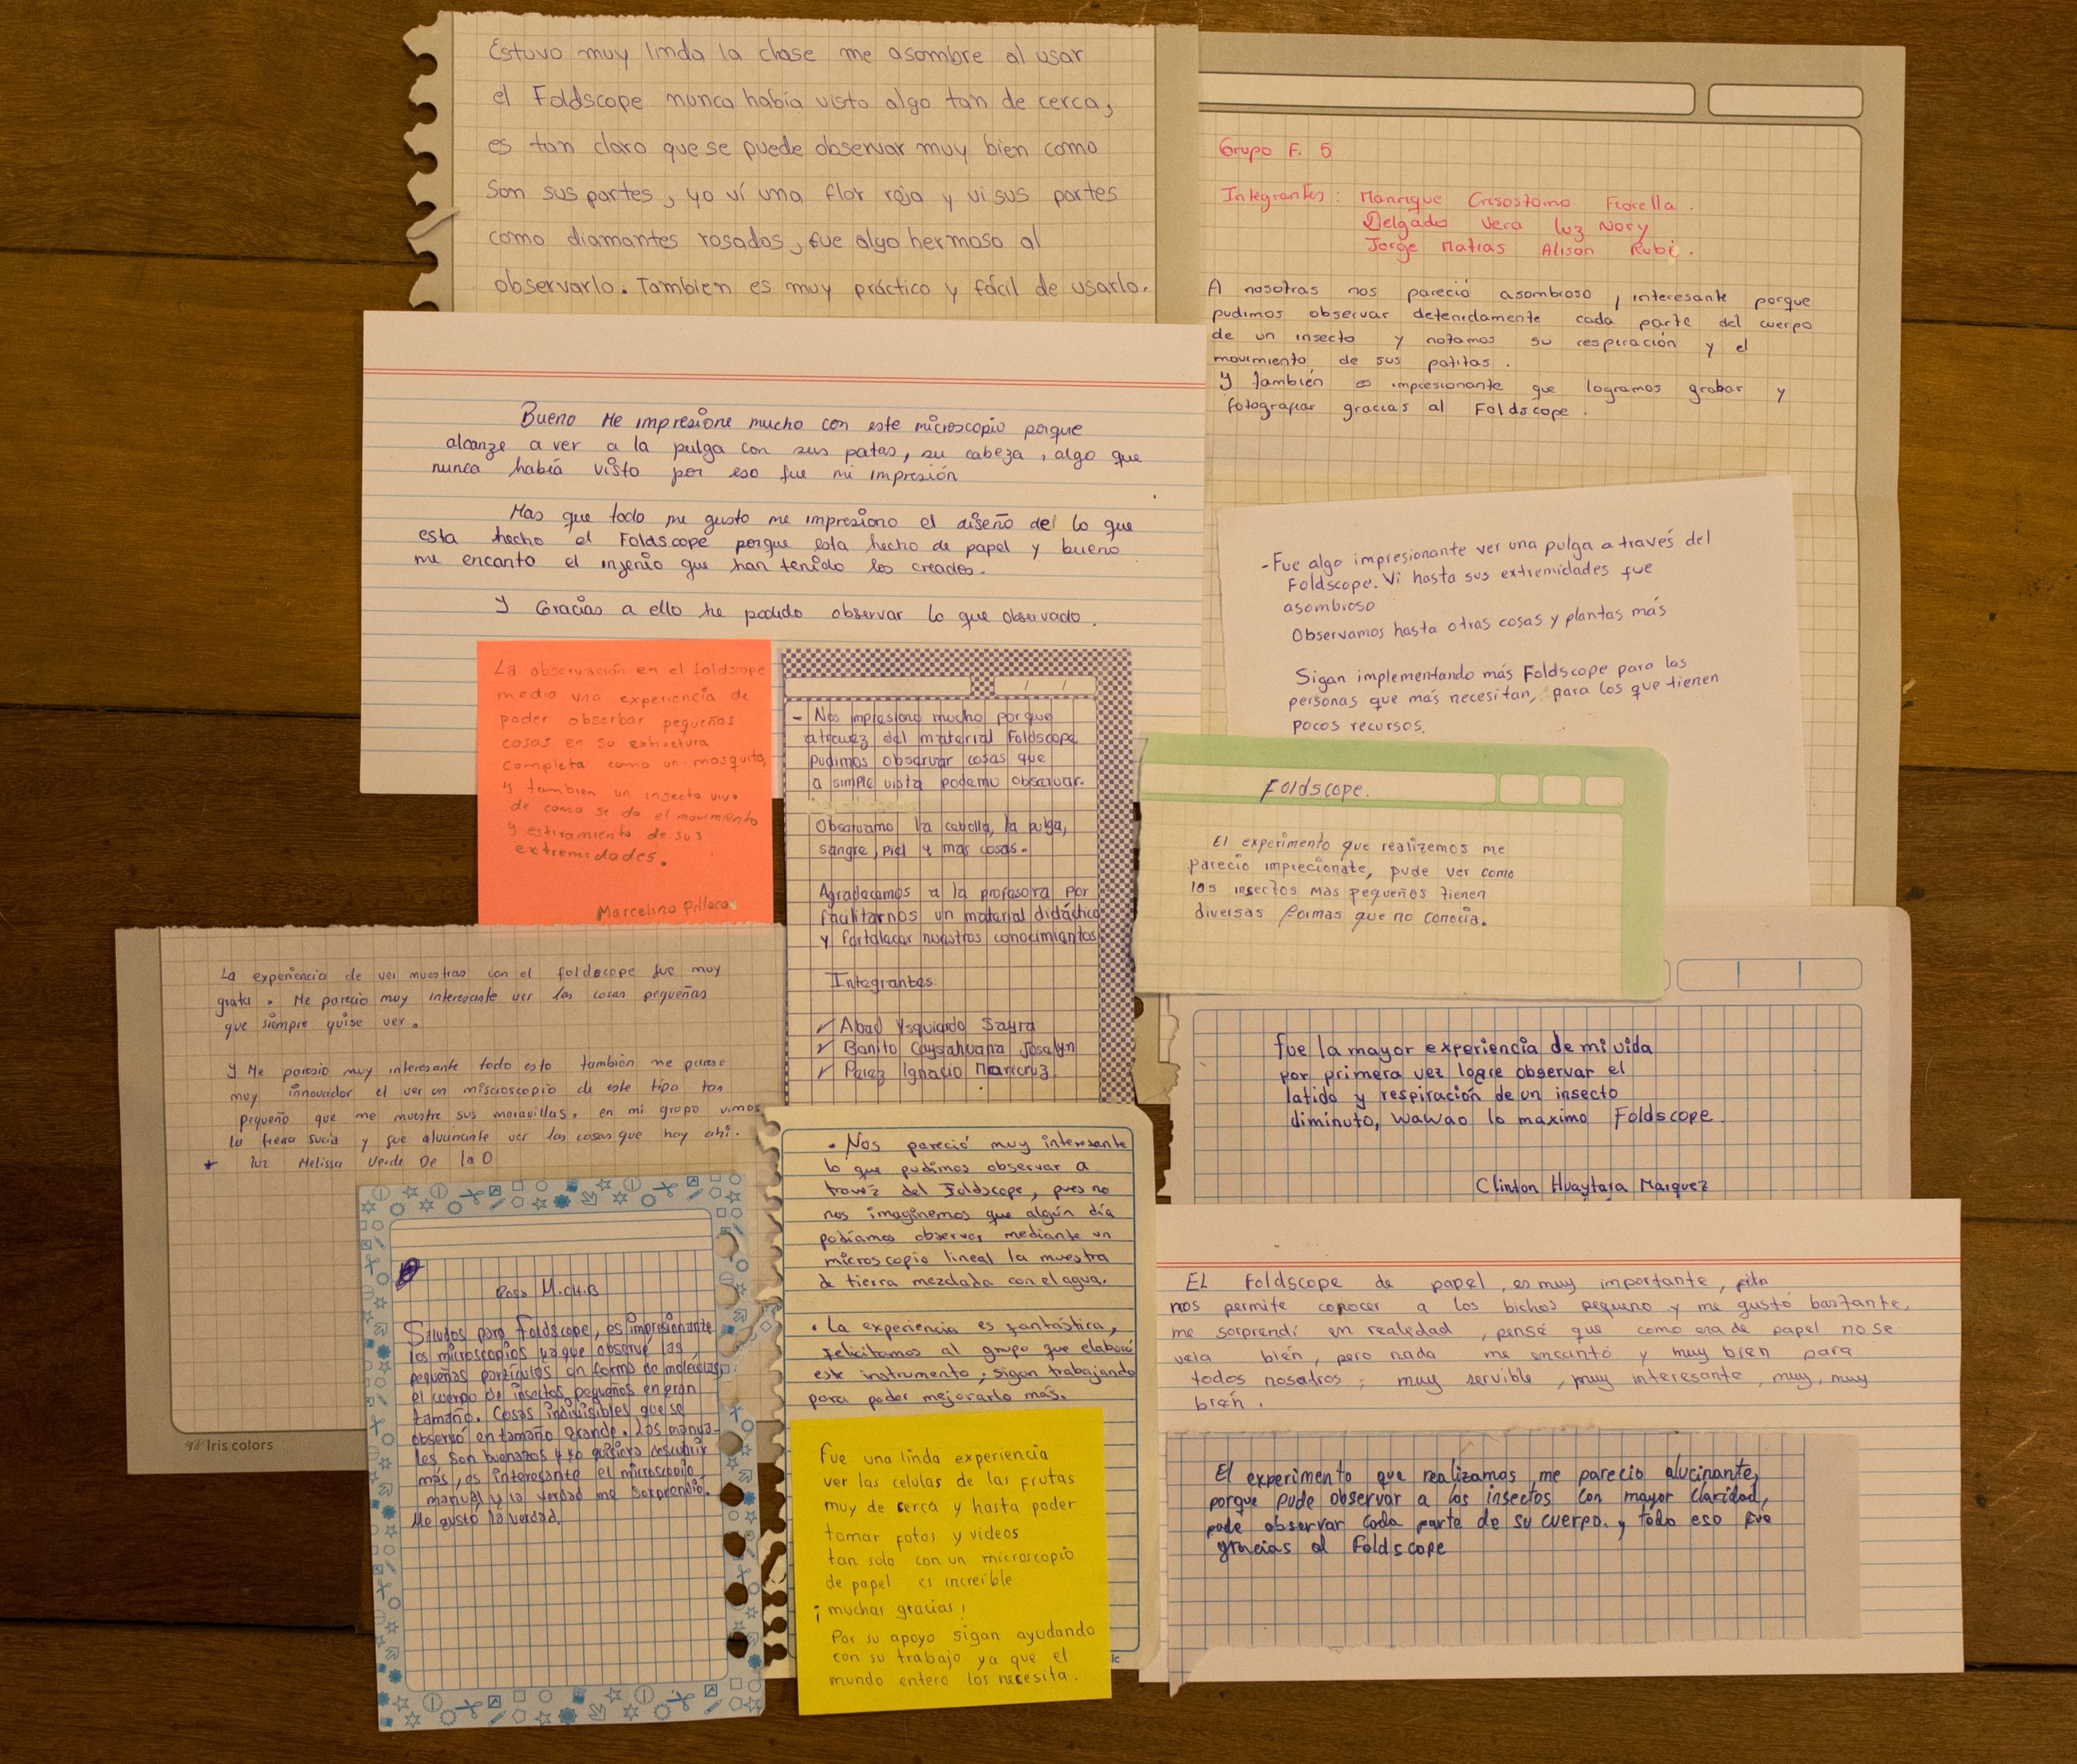 Estuvo muy linda la clase me asombre al usar
el Foldscope nunca había visto algo tan de cerca,
es tan claro que se puede observar muy bien como
Son sus partes, yo ví una flor roja y vi sus partes
como diamantes rosados, fue algo hermoso al
observarlo. Tambien es muy práctico y fácil de usarlo.
Grupo F. 5
Integrantes: Manrique Crisostomo Fiorella.
Delgado Vera Luz Nory
Jorge Matias Alison Rubi.
A nosotras nos pareció asombroso, interesante porque
pudimos observar detenidamente cada parte del cuerpo
de un insecto y notamos su respiración y el
movimiento de sus patitas.
Y también es impresionante que logramos grabar y
fotografiar gracias al Foldscope.
Bueno Me impresione mucho con este microscopio porque
alcanze a ver a la pulga con sus patas, su cabeza, algo que
nunca había visto por eso fue mi impresión
Mas que todo me gusto me impresiono el diseño del lo que
esta hecho el Foldscope porque esta hecho de papel y bueno
me encanto el ingenio que han tenido los creados.
Y Gracias a ello he podido observar lo que observado.
-Fue algo impresionante ver una pulga a través del
Foldscope. Vi hasta sus extremidades fue
asombroso
Observamos hasta otras cosas y plantas más
Sigan implementando más Foldscope para las
personas que más necesitan, para los que tienen
pocos recursos.
La observación en el foldscope
medio una experiencia de
poder obserbar pequeñas
cosas en su extructura
completa como un mosquito,
y tambien un insecto vivo
de como se da el movimiento
y estiramiento de sus
extremidades.
Marcelino Pillaca
- Nos impresiono mucho porque
atravez del material Foldscope
pudimos observar cosas que
a simple vista podemo observar.
Observamo la cebolla, la pulga,
sangre, piel y mas cosas.
Agradecemos a la profesora por
facilitarnos un material didáctico
y fortalecer nuestros conocimientos
Integrantes:
✓ Abad Ysquierdo Sayra
✓ Benito Caysahuana Joselyn
✓ Perez Ignacio Maricruz
Foldscope.
El experimento que realizemos me
parecio imprecionate, pude ver como
los insectos mas pequeños tienen
diversas formas que no conocia.
La experiencia de ver muestras con el foldscope fue muy
grata. Me parecio muy interesante ver las cosas pequeñas
que siempre quise ver.
Y Me paresio muy interesante todo esto también me parese
muy innovador el ver un miscroscopio de este tipo tan
pequeño que me muestre sus maravillas. en mi grupo vimos
la tierra sucia y fue alucinante ver las cosas que hay ahi.
* luz Melissa Verde De la O
fue la mayor experiencia de mi vida
por primera vez logre observar el
latido y respiración de un insecto
diminuto, wawao lo maximo Foldscope.
Clinton Huaytara Marquez
• Nos pareció muy interesante
lo que pudimos observar a
travéz del Foldscope, pues no
nos imaginemos que algún día
podíamos observar mediante un
microscopio lineal la muestra
de tierra mezclada con el agua.
• La experiencia es fantástica,
felicitamos al grupo que elaboró
este instrumento; sigan trabajando
para poder mejorarlo más.
Rosa M.CH.B
Saludos para Foldscope, es impresionante
los microscopios ya que observe las
pequeñas partículas en forma de moleculas,
el cuerpo de insectos pequeños en gran
tamaño. Cosas indivisibles que se
observó en tamaño grande. Los manua-
les son buenazos y yo quisiera descubrir
más, es interesante el microscopio
manual y la verdad me sorprendio.
Me gustó la verdad.
Iris colors
EL Foldscope de papel, es muy importante,
nos permite conocer a los bichos pequeno y me gustó bastante,
me sorprendi en realidad, pensé que como era de papel no se
veía bién, pero nada me encantó y muy bien para
todos nosotros; muy servible, muy interesante, muy, muy
bien.
El experimento que realizamos me parecio alucinante,
porque pude observar a los insectos con mayor claridad,
pude observar cada parte de su cuerpo. y todo eso fue
gracias al Foldscope
Fue una linda experiencia
ver las celulas de las frutas
muy de cerca y hasta poder
tomar fotos y videos
tan solo con un microscopio
de papel es increíble
¡muchas gracias!
Por su apoyo sigan ayudando
con su trabajo ya que el
mundo entero los necesita.